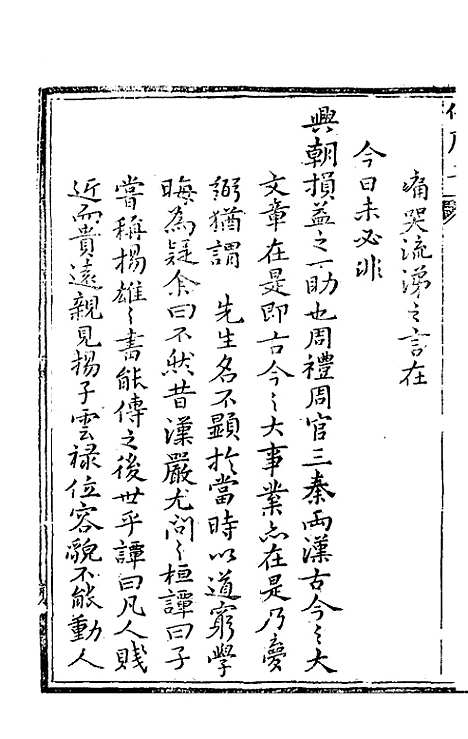 痛哭流涕之言在
今日未必非
興朝損益之一助也周禮周官三秦兩漢古今之大
文章在是即古今之大事業亦在是乃慶
弼猶謂　先生名不顯於當時以道窮學
晦為疑余曰不然昔漢嚴尤問之桓譚曰子
嘗稱揚雄之書能傳之後世乎譚曰凡人賤
近而貴遠親見揚子雲祿位容貌不能動人